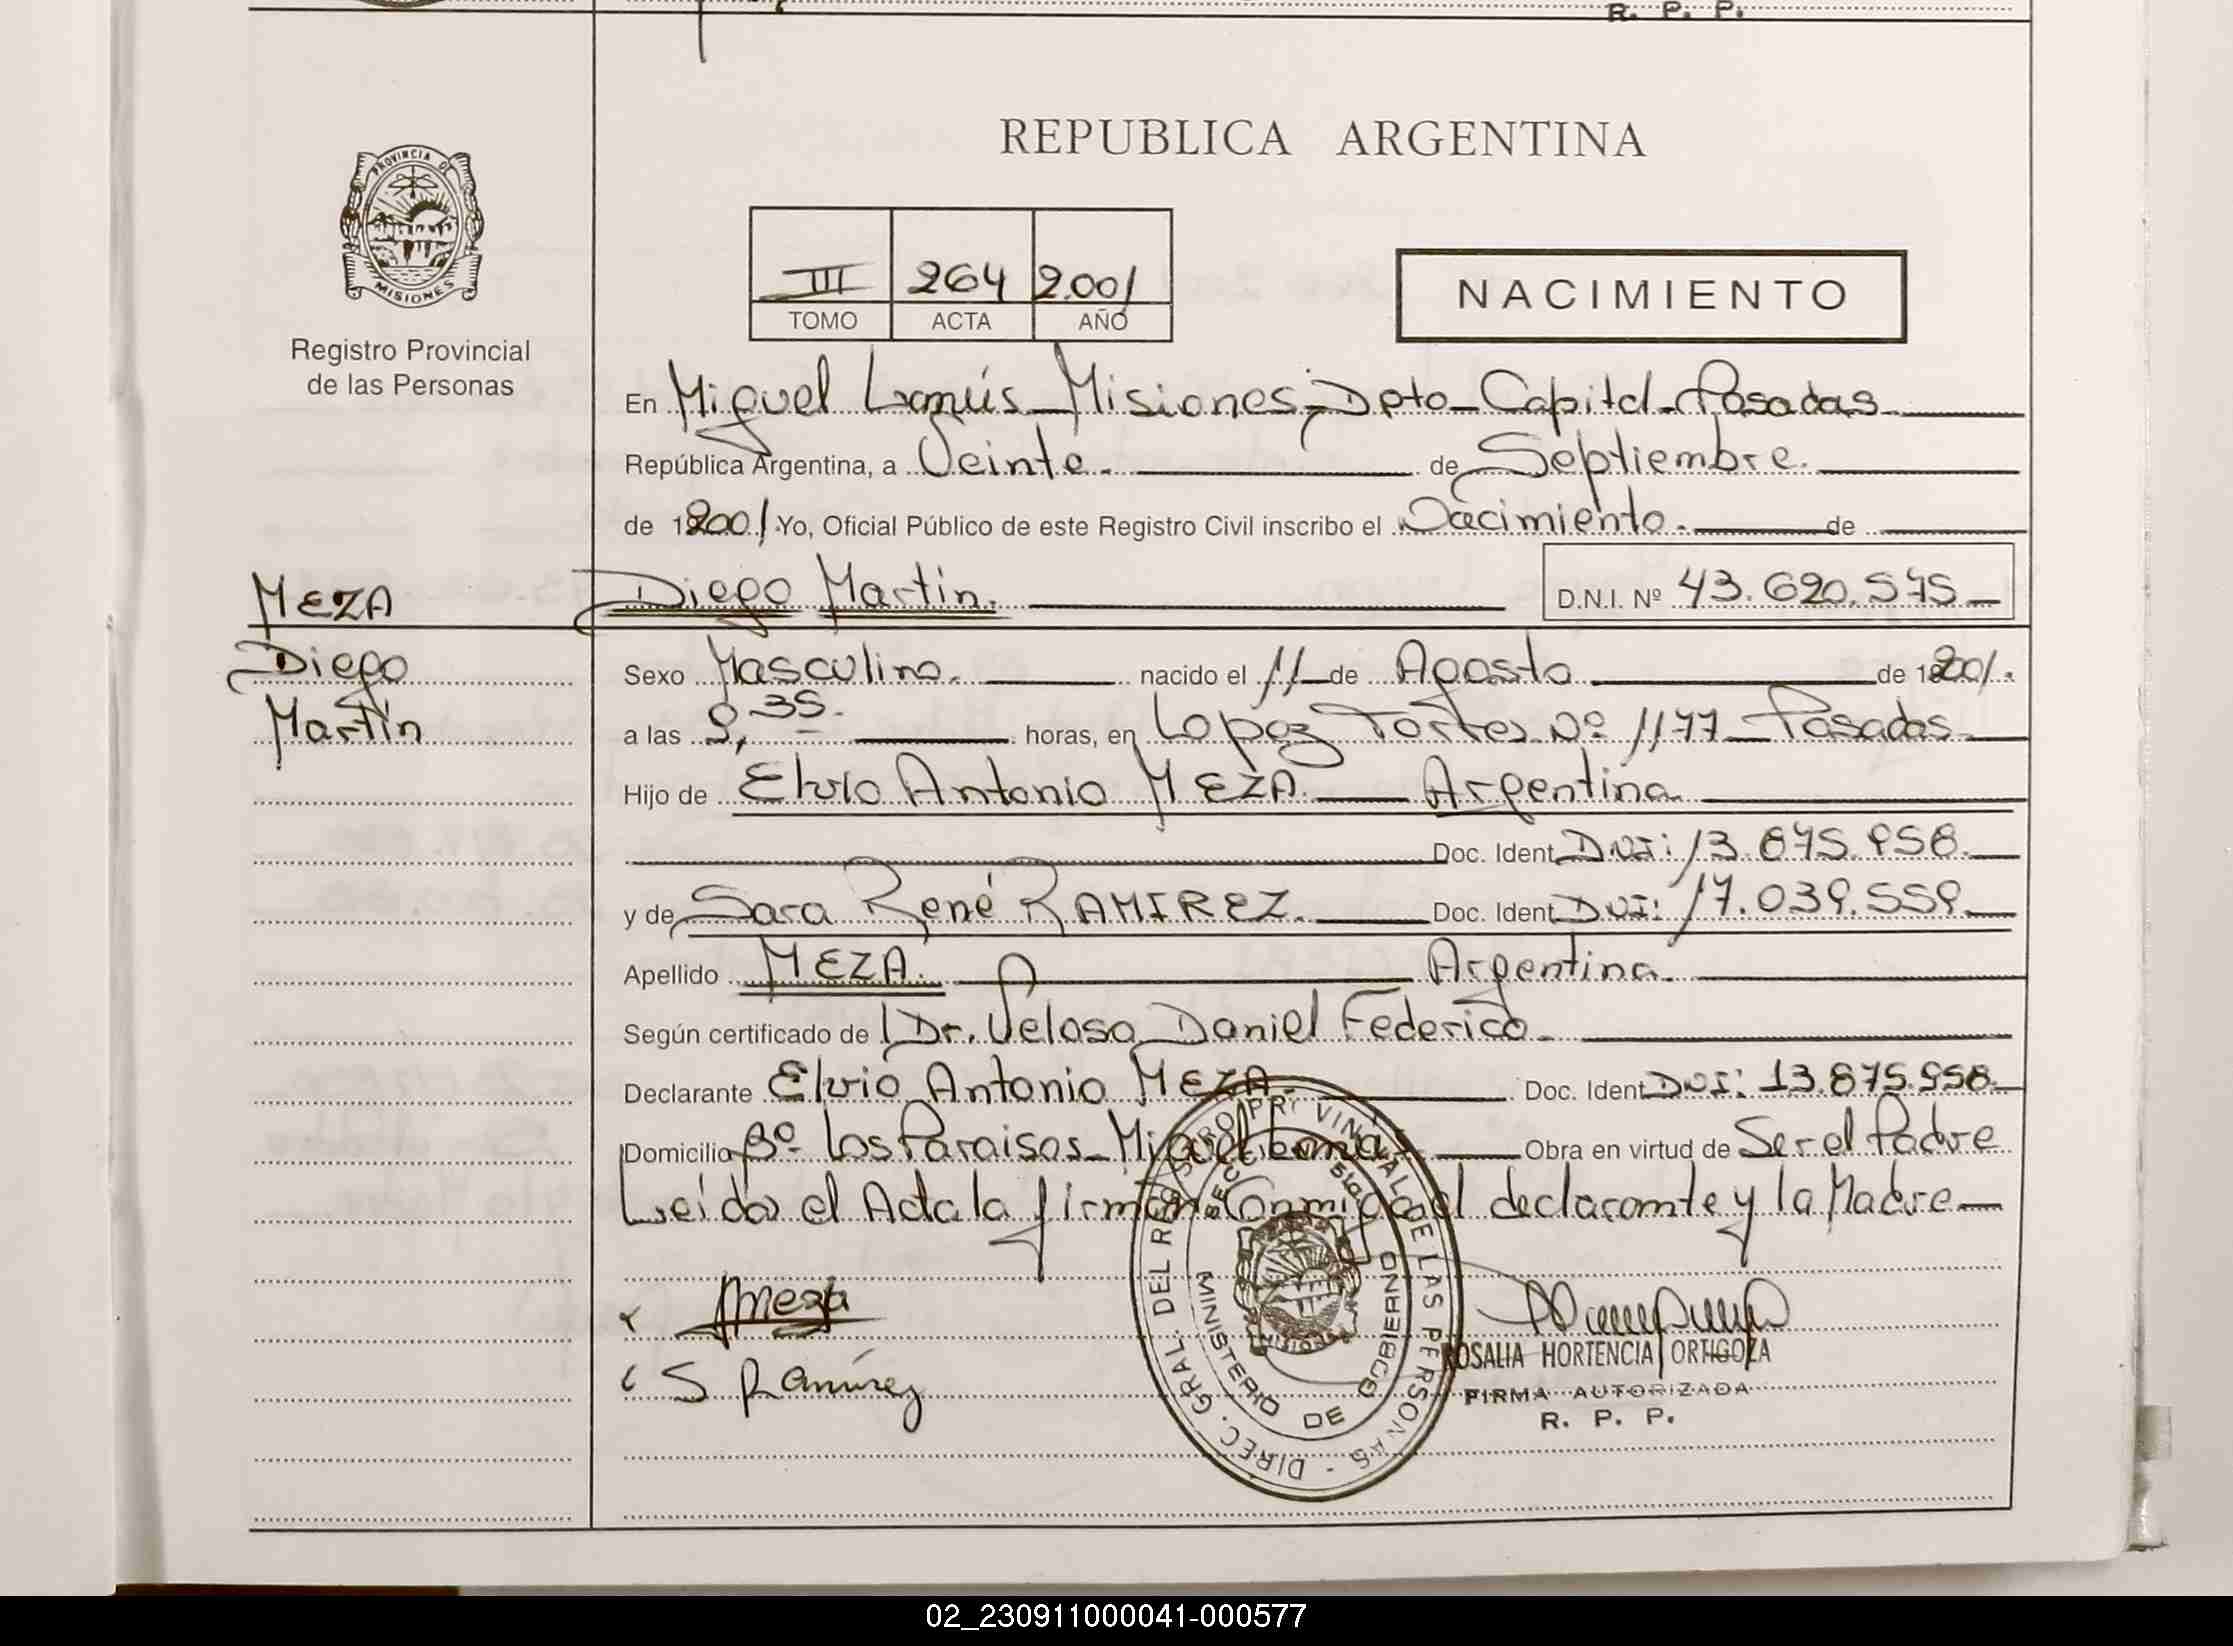 R. P. P.
PROVINCIA DE
MISIONES
Registro Provincial
de las Personas
REPUBLICA ARGENTINA
III 264 2.001
TOMO ACTA AÑO
NACIMIENTO
En Miguel Lanús - Misiones, Dpto - Capital - Posadas
República Argentina, a Veinte. de Septiembre.
de 2001 Yo, Oficial Público de este Registro Civil inscribo el Nacimiento. de
MEZA Diego Martín. D.N.I. Nº 43.620.575
Diego Sexo Masculino. nacido el 11 de Agosto de 2001.
Martín a las 9,35. horas, en Lopez Torres Nº 1177 - Posadas.
Hijo de Elvio Antonio MEZA. Argentina
Doc. Ident DNI: 13.875.958.
y de Sara René RAMIREZ. Doc. Ident DNI: 17.039.559.
Apellido MEZA. Argentina
Según certificado de Dr. Veloso Daniel Federico.
Declarante Elvio Antonio MEZA. Doc. Ident DNI: 13.875.958.
Domicilio Bº Los Paraisos - Miguel Lanús Obra en virtud de Ser el Padre
Leída el Acta la firman Conmigo el declarante y la Madre
Meza
S Ramírez
DIREC. GRAL. DEL REGISTRO PROVINCIAL DE LAS PERSONAS
MINISTERIO DE GOBIERNO
MISIONES
ROSALIA HORTENCIA ORTIGOZA
FIRMA AUTORIZADA
R. P. P.
02_230911000041-000577